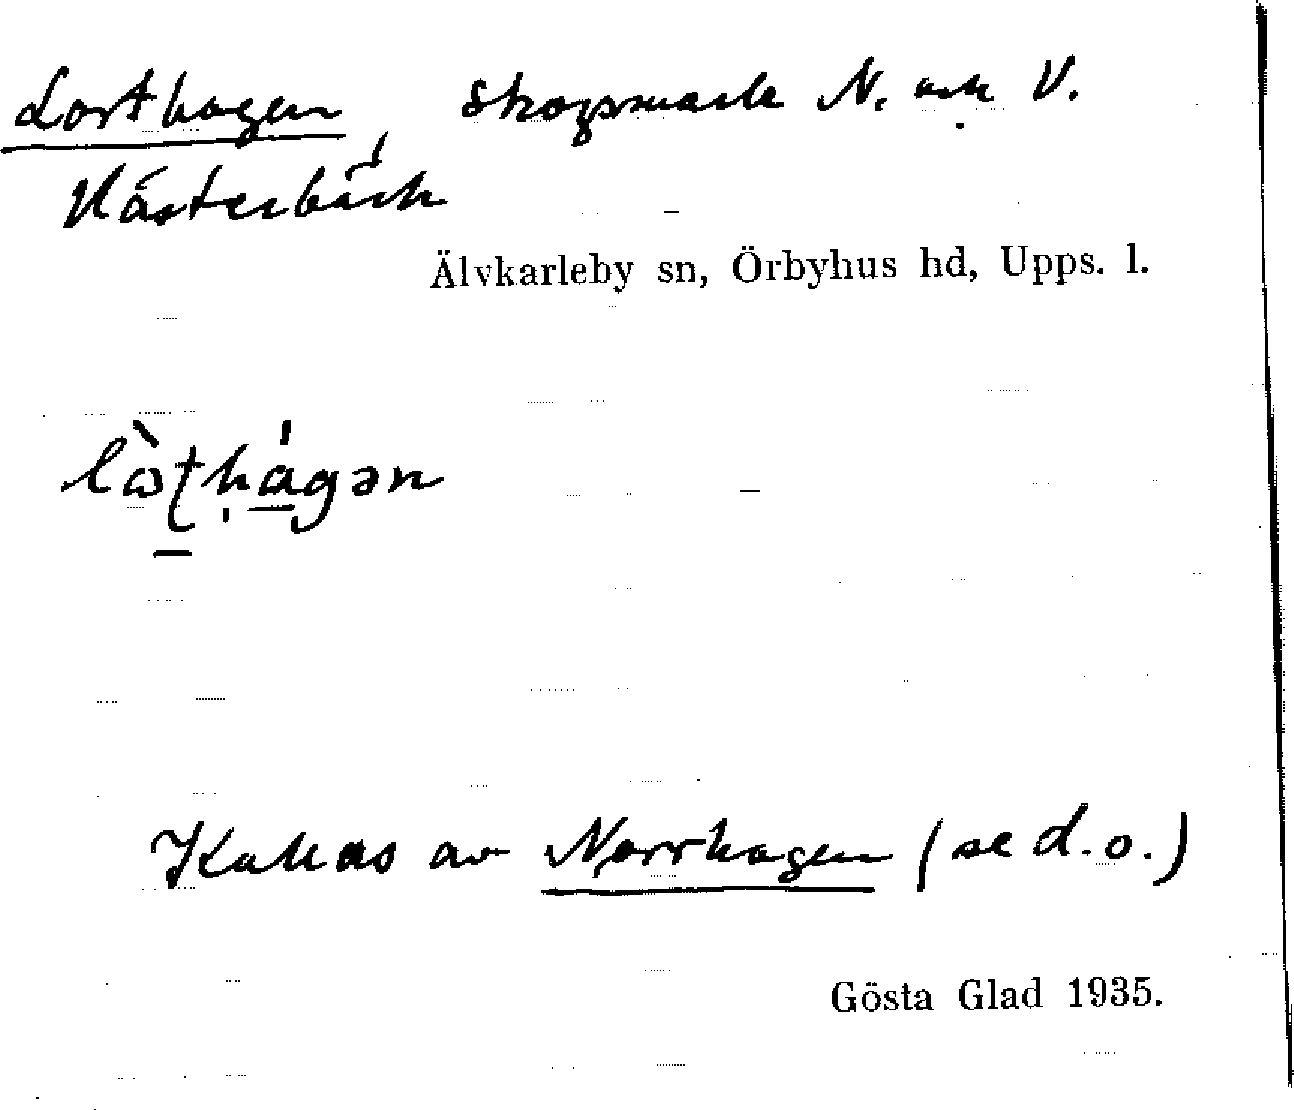 Lorthagen, Skogsmark N. och V.
Västerbäck
Älvkarleby sn, Örbyhus hd, Upps. l.
lò̱̱ṯḥa̱̍gən
Kallas av Norrhagen (se d.o.)
Gösta Glad 1935.